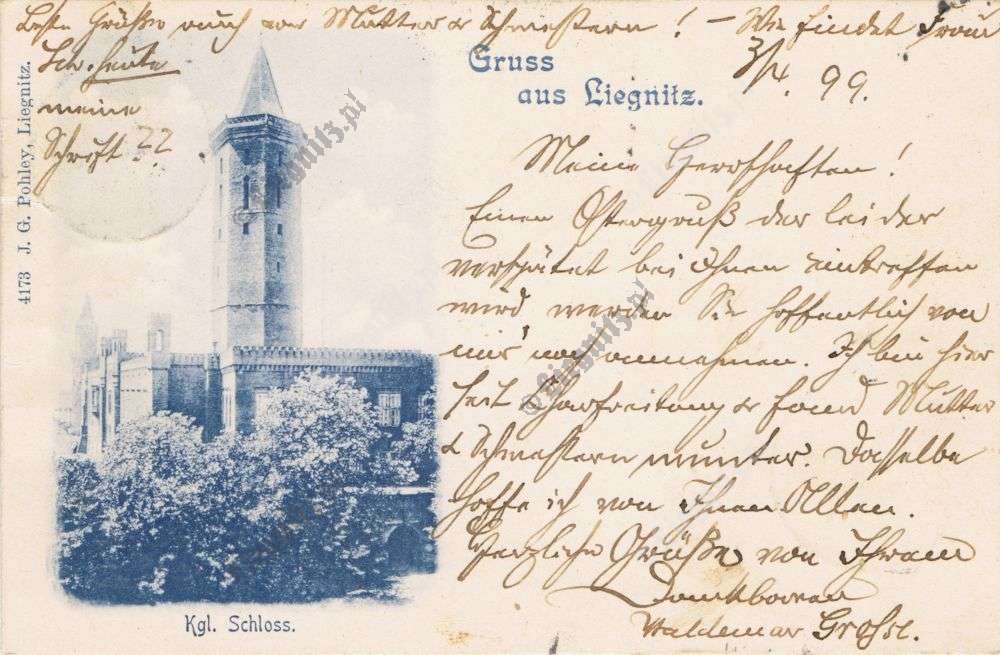 Beste Grüße auch von Mutter & Schwestern! – Wie findet Frau
Sch. heute
meine
Schrift??
Gruss
aus Liegnitz.
3/4 99.
Meine Herrschaften!
Einen Ostergruß der leider
verspätet bei Ihnen eintreffen
wird, werden Sie hoffentlich von
mir noch annehmen. Ich bin hier
seit Charfreitag & fand Mutter
& Schwestern munter. Dasselbe
hoffe ich von Ihnen Allen.
Herzliche Grüße von Ihrem
Dankbaren
Waldemar Grosse.
4173 J. G. Pohley, Liegnitz.
Kgl. Schloss.
©Liegnitz.pl